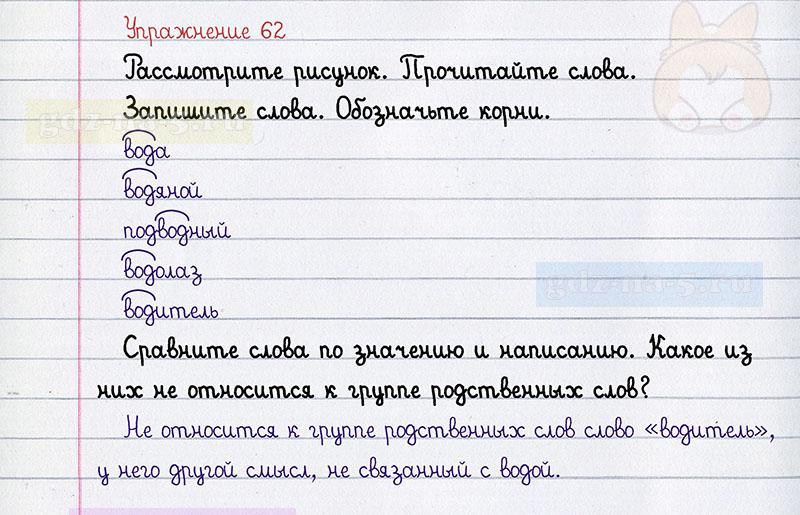 Упражнение 62
Рассмотрите рисунок. Прочитайте слова.
Запишите слова. Обозначьте корни.
gdz-na-5.ru
вода
водяной
подводный
водолаз
gdz-na-5.ru
водитель
Сравните слова по значению и написанию. Какое из
них не относится к группе родственных слов?
Не относится к группе родственных слов слово «водитель»,
у него другой смысл, не связанный с водой.